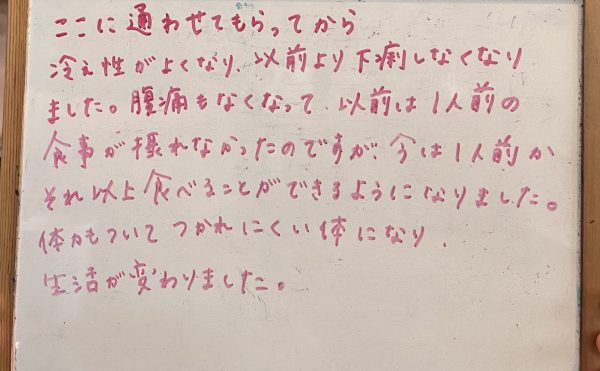 ここに通わせてもらってから
冷え性がよくなり、以前より下痢しなくなり
ました。腹痛もなくなって、以前は1人前の
食事が摂れなかったのですが、今は1人前か
それ以上食べることができるようになりました。
体力もついてつかれにくい体になり、
生活が変わりました。